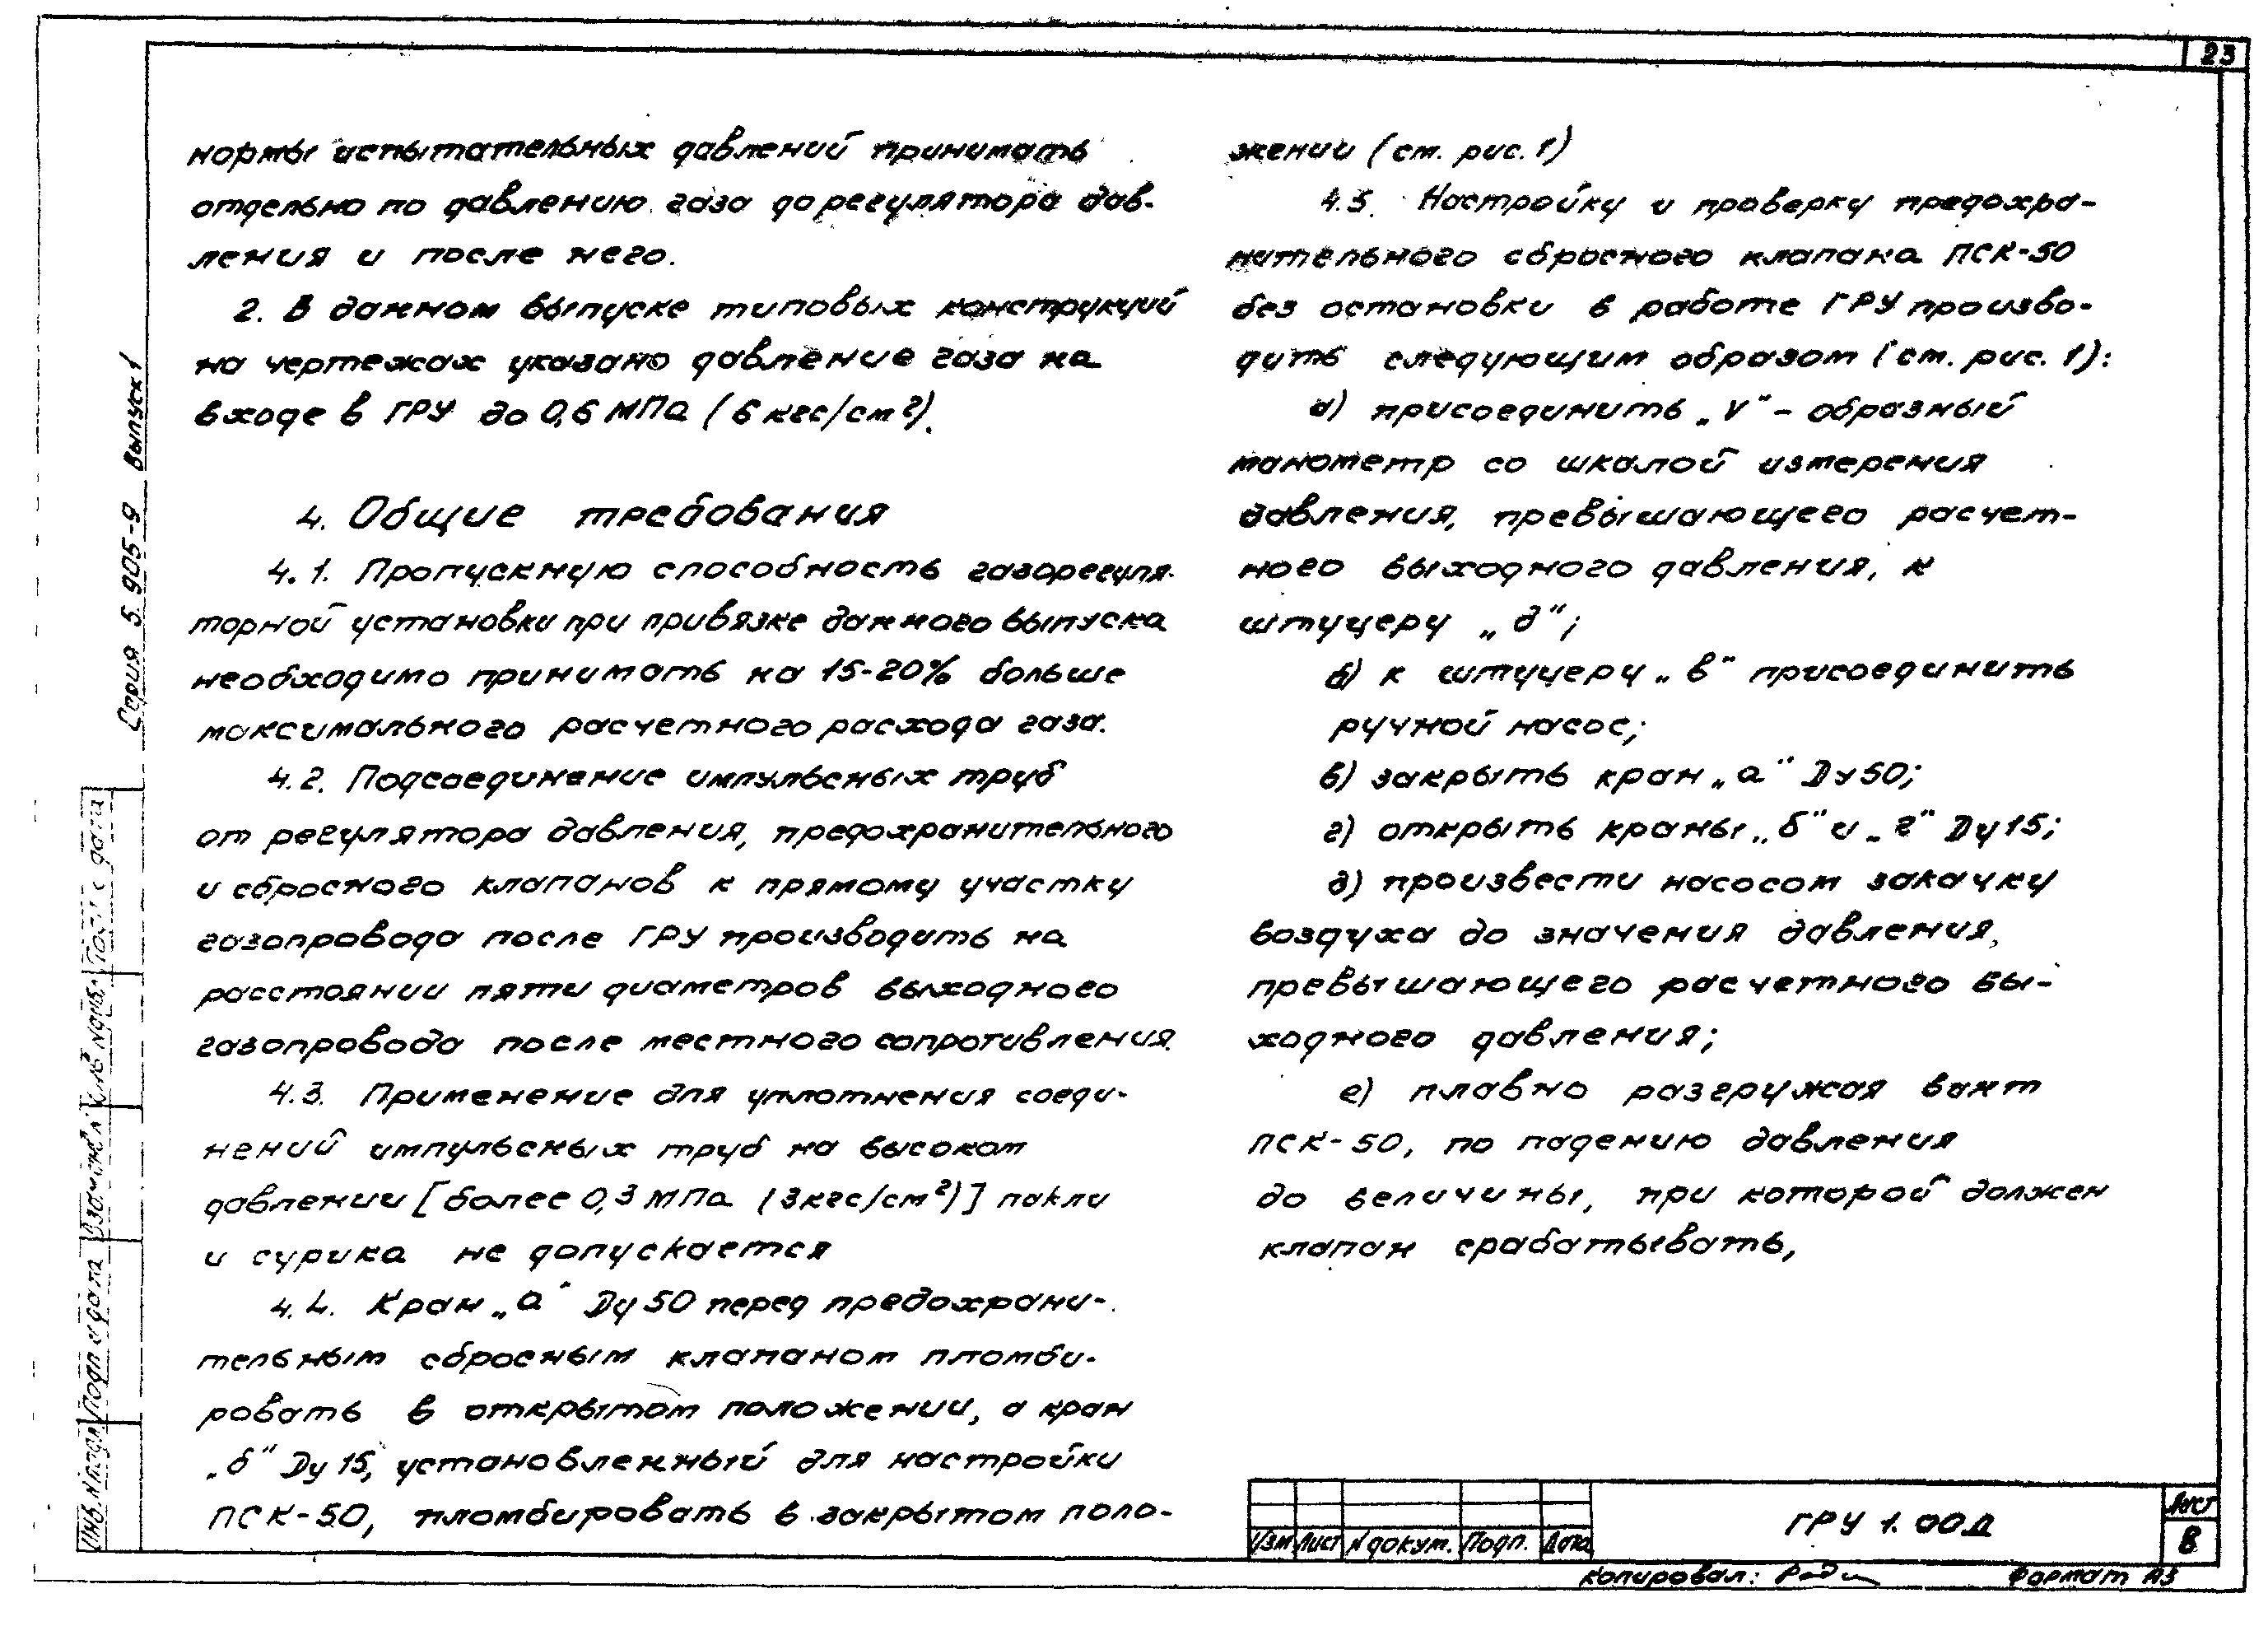 23
нормы испытательных давлений принимать
отдельно по давлению газа до регулятора дав-
ления и после него.
2. В данном выпуске типовых конструкций
на чертежах указано давление газа на
входе в ГРУ до 0,6 МПа (6 кгс/см²).
4. Общие требования
4.1. Пропускную способность газорегуля-
торной установки при привязке данного выпуска
необходимо принимать на 15-20% больше
максимального расчетного расхода газа.
4.2. Подсоединение импульсных труб
от регулятора давления, предохранительного
и сбросного клапанов к прямому участку
газопровода после ГРУ производить на
расстоянии пяти диаметров выходного
газопровода после местного сопротивления.
4.3. Применение для уплотнения соеди-
нений импульсных труб на высоком
давлении [более 0,3 МПа (3кгс/см²)] пакли
и сурика не допускается
4.4. Кран „а“ Ду 50 перед предохрани-
тельным сбросным клапаном пломби-
ровать в открытом положении, а кран
„б“ Ду 15, установленный для настройки
ПСК-50, пломбировать в закрытом поло-
жении (ст. рис. 1)
4.5. Настройку и проверку предохра-
нительного сбросного клапана ПСК-50
без остановки в работе ГРУ произво-
дить следующим образом (ст. рис. 1):
а) присоединить „V“ - образный
манометр со шкалой измерения
давления, превышающего расчет-
ного выходного давления, к
штуцеру „д“;
б) к штуцеру „в“ присоединить
ручной насос;
в) закрыть кран „а“ Ду 50;
г) открыть краны „б“ и „г“ Ду 15;
д) произвести насосом закачку
воздуха до значения давления,
превышающего расчетного вы-
ходного давления;
е) плавно разгружая винт
ПСК-50, по падению давления
до величины, при которой должен
клапан срабатывать,
Серия 5.905-9 Выпуск 1
Инв. № подл. Подп и дата Взам инв № Инв № дубл. Подп и дата
Изм Лист № докум. Подп. Дата
ГРУ 1.00Д
Лист
8
Копировал:
Формат А3